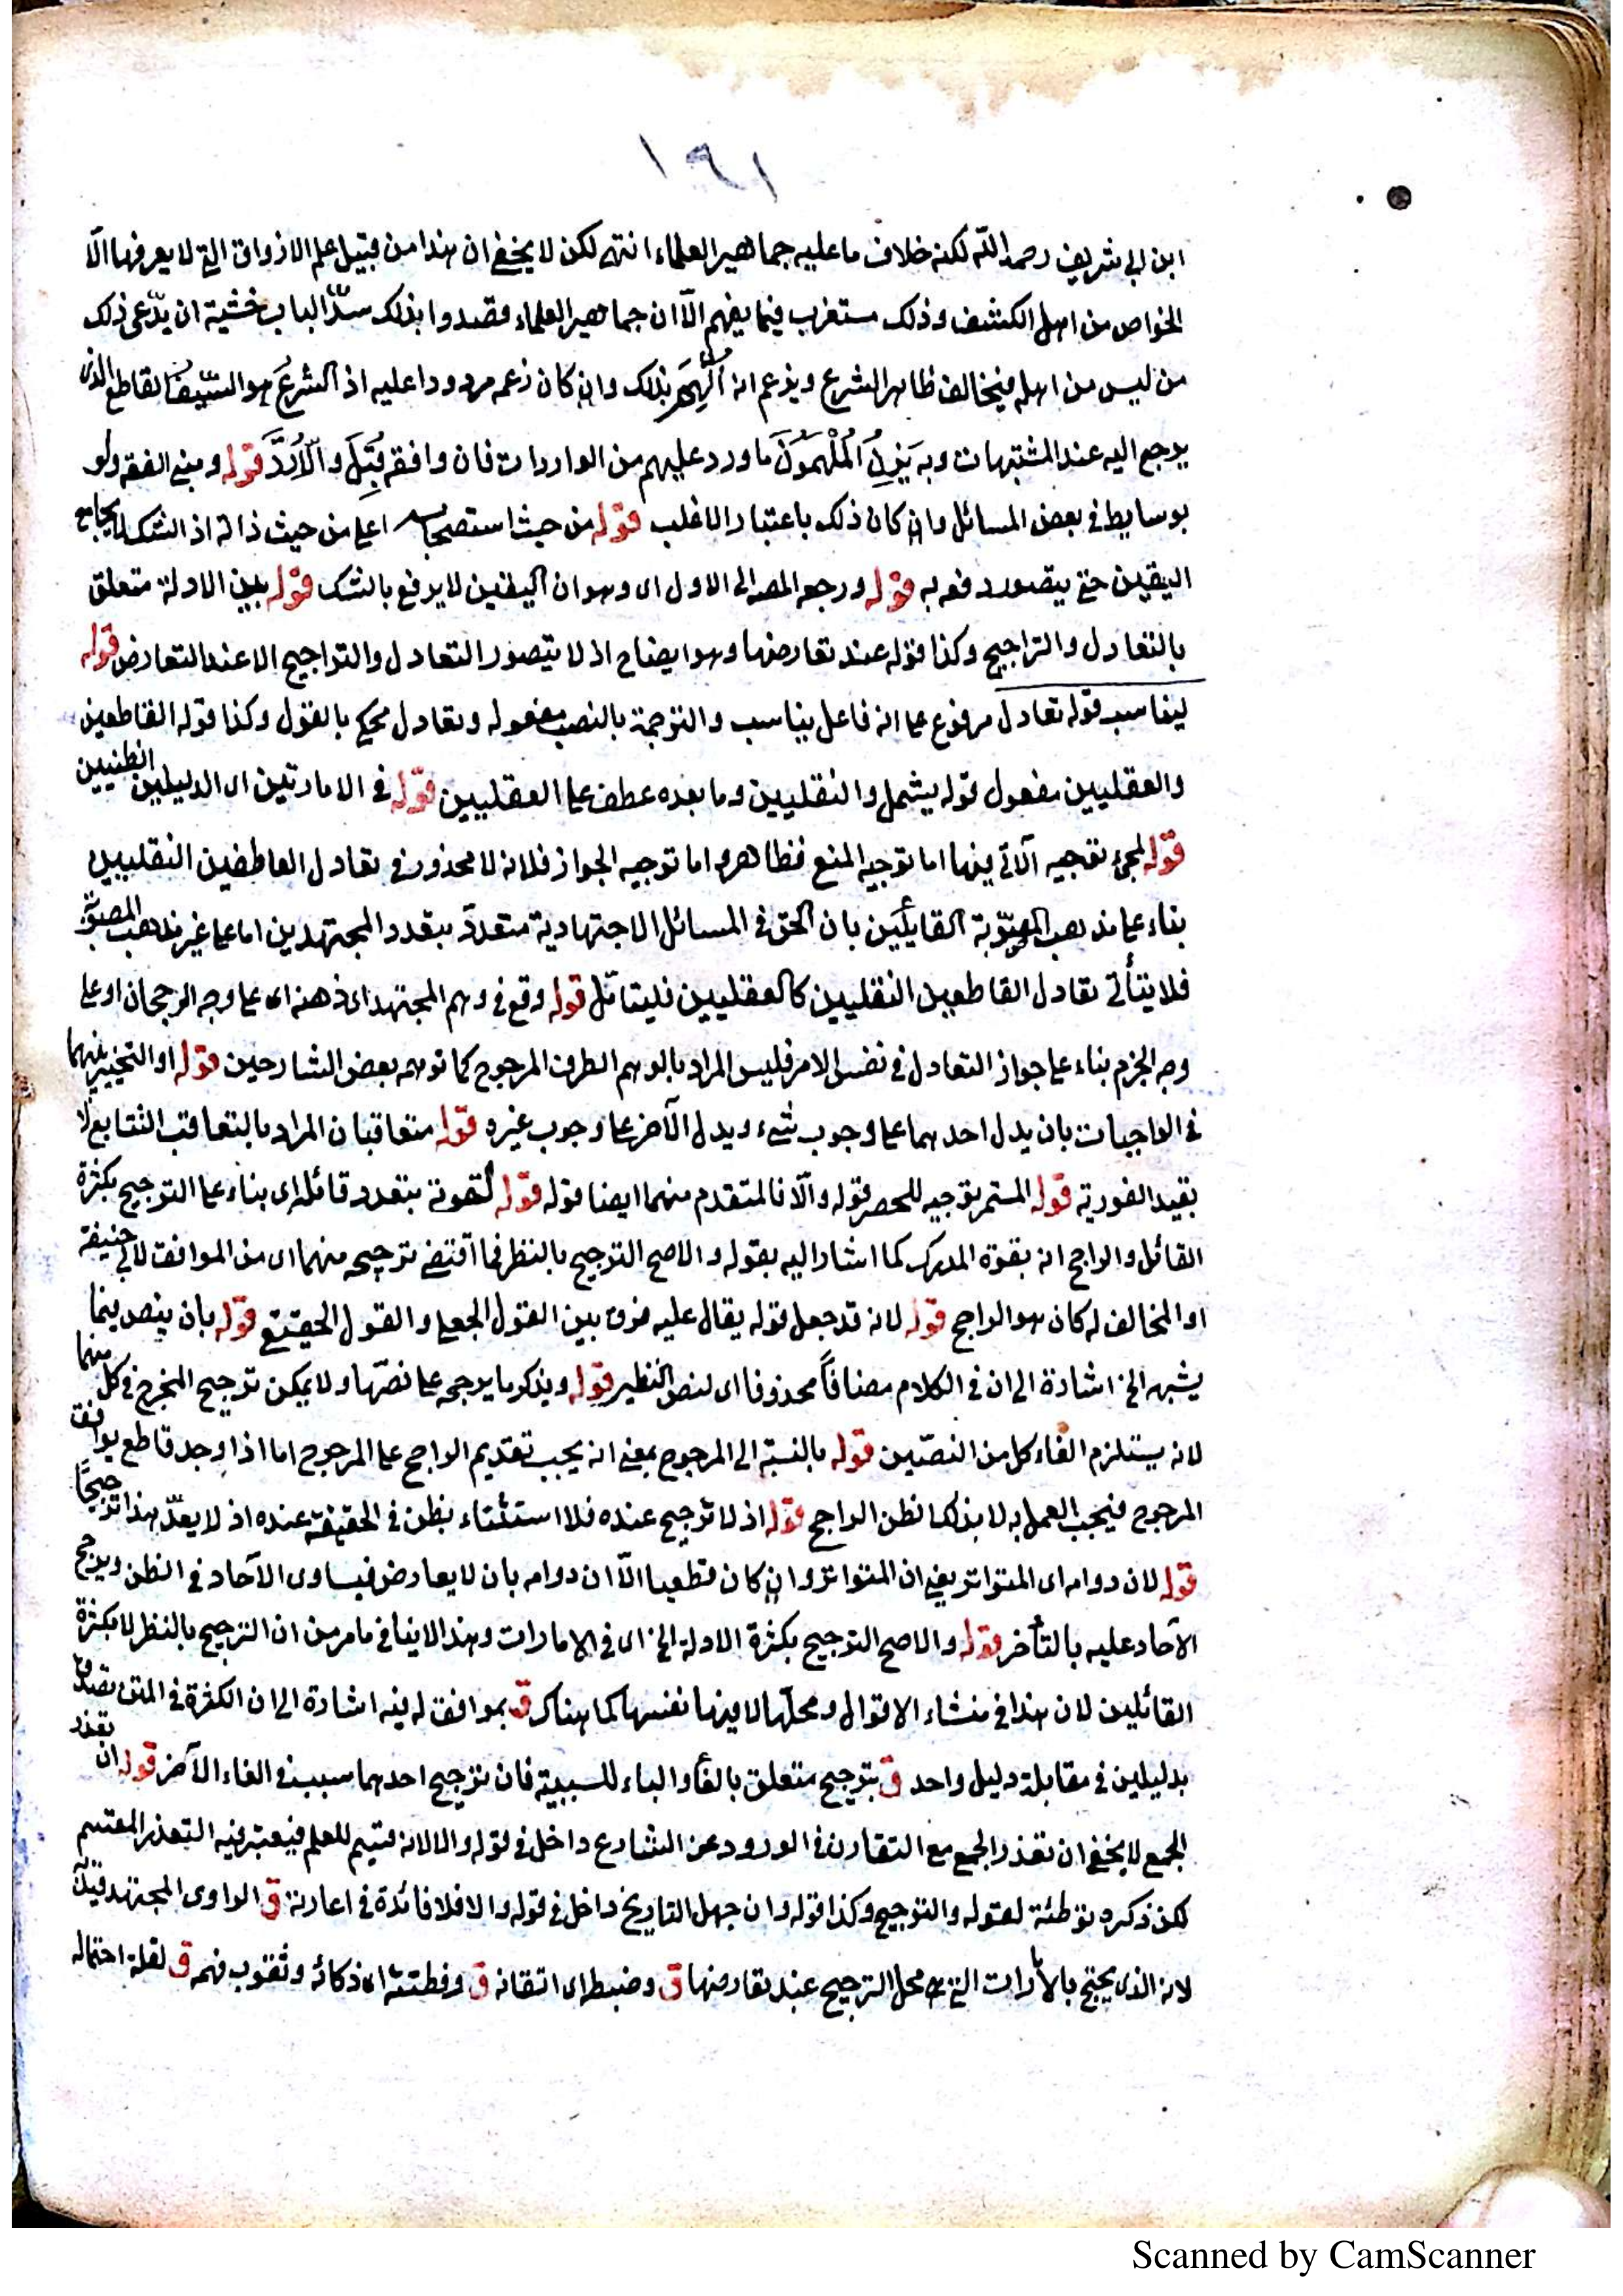 ١٩١
ابن ابى شريف رحمه الله لكنه خلاف ما عليه جماهير العلماء انتهى لكن لا يخفى ان هذا من قبيل علم الاذواق التى لا يعرفها الّا
الخواص من اهل الكشف وذلك مستغرب فيما يفهم الّا ان جماهير العلماء قصدوا بذلك سدّ الباب خشية ان يدّعى ذلك
من ليس من اهله فيخالف ظاهر الشرع ويزعم انه اُلهِمَ بذلك وان كان زعمه مردودا عليه اذ الشرعَ هو السّيف القاطع الذى
يرجع اليه عند المشتبهات وبه يَزِنُ المُلْهَمُونَ ما ورد عليهم من الواردات فان وافقه قُبِلَ والّا رُدَّ قوله ومبنى الفقه ولو
بوسايط فى بعض المسائل وان كان ذلك باعتبار الاغلب قوله من حيث استصحابه اعلى من حيث ذاته اذ الشك لا يجامع
اليقين حتى يتصور رفعه به قوله ورجعه المصـ الى الاول اى وهو ان اليقين لا يرفع بالشك قوله بين الادلة متعلق
بالتعادل والتراجيح وكذا قوله عند تعارضها وهو ايضاح اذ لا يتصور التعادل والتراجيح الا عند التعارض قوله
ليناسب قوله تعادل مرفوع على انه فاعل يناسب والترجمة بالنصب مفعوله وتعادل محكى بالقول وكذا قوله القاطعين
والعقليين مفعول قوله يشمل والنقليين وما بعده عطف على العقليين قوله فى الامارتين اى الدليلين الظنيين
قوله لمجئ توجيه الآتى فيها اما توجيه المنع فظاهر واما توجيه الجواز فلانه لا محذور فى تعادل القاطعين النقليين
بناء على مذهب المصوّبة القايلين بان الحق فى المسائل الاجتهادية متعدد بتعدد المجتهدين اما على غير مذهب المصوّبة
فلا يتأتى تعادل القاطعين النقليين كالعقليين فليتامّل قوله وقع فى وهم المجتهد اى ذهنه اى على وجه الرجحان او على
وجه الجزم بناء على جواز التعادل فى نفس الامر فليس المراد بالوهم الطرف المرجوح كما توهمه بعض الشارحين قوله او التخيير بينهما
فى الواجبات بان يدل احدهما على وجوب شىء ويدل الآخر على وجوب غيره قوله متعاقبان المراد بالتعاقب التتابع لا
بقيد الفورية قوله المستمر توجيه للحصر قوله والّا فالمتقدم منهما ايضا قوله قوله لقوته بتعدد قائله اى بناء على الترجيح بكثرة
القائل والراجح انه بقوة المدرك كما اشار اليه بقوله والاصح الترجيح بالنظر فما اقتضى ترجيحه منهما اى من الموافق لابى حنيفة
او المخالف له كان هو الراجح قوله لانه قد جعل قوله يقال عليه فرق بين القول الجعلى والقول الحقيقى قوله بان ينص فيما
يشبهه الخ اشارة الى ان فى الكلام مضافاً محذوفا اى لنص النظير قوله ويذكر ما يرجحه على نصّها ولا يمكن ترجيح المخرج فى كل منهما
لانه يستلزم الغاء كل من النصّين قوله بالنسبة الى المرجوح بمعنى انه يجب تقديم الراجح على المرجوح اما اذا وجد قاطع يوافق
المرجوح فيجب العمل به لا بذلك الظن الراجح قوله اذ لا ترجيح عنده فلا استثناء بظن فى الحقيقة عنده اذ لا يعدّ هذا ترجيحاً
قوله لان دوامه اى المتواتر يعنى ان المتواتر وان كان قطعيا الّا ان دوامه بان لا يعارض فيساوى الآحاد فى الظن ويرجح
الآحاد عليه بالتأخر قوله والاصح الترجيح بكثرة الادلة الخ اى فى الامارات وهذا لا ينافى ما مر من ان الترجيح بالنظر لا بكثرة
القائلين لان هذا فى منشاء الاقوال ومحلّها لا فيها نفسها كما هناك ق بموافق له فيه اشارة الى ان الكثرة فى المتن تصدق
بدليلين فى مقابلة دليل واحد ق بترجيح متعلق بالغاء والباء للسببية فان ترجيح احدهما سبب فى الغاء الآخر قوله ان تعذر
الجمع لا يخفى ان تعذر الجمع مع التقارن فى الورود عن الشارع داخل فى قوله والا لانه قسيم للعلم فيعتبر فيه التعذر المقسم
لكن ذكره توطئة لقوله والترجيح وكذا قوله وان جهل التاريخ داخل فى قوله والا فلا فائدة فى اعادته ق الراوى المجتهد قيل
لانه الذى يحتج بالامارات التى هى محل الترجيح عند تعارضها ق وضبطه اى اتقانه ق وفطنته اى ذكائه وثقوب فهمه ق لقلة احتماله
Scanned by CamScanner